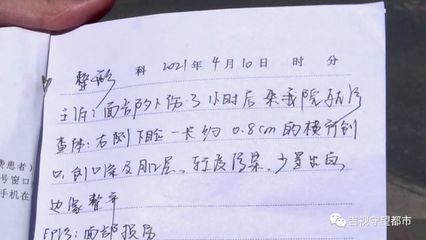 整形 科 2021年4月10日 时 分
主诉：面部外伤3小时后来我院就诊
查体：右侧下睑一长约0.8cm的横行创
口，创口深及肌层，轻度污染，少量出血，
边缘整齐
印诊：面部损伤
费患者）
号窗口
手机在
吉视守望都市